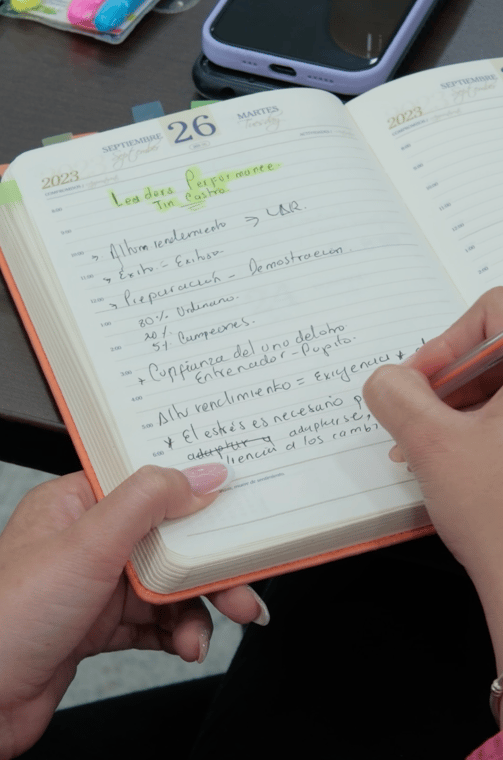 2023
SEPTIEMBRE
September
26
MARTES
Tuesday
Leaders Performance.
Tin Castro.
→ Alto rendimiento → LAR.
→ Éxito = Exitoso
→ Preparación - Demostración.
80% Ordinario.
20%
5% Campeones.
+ Confianza del uno del otro
Entrenador - Pupilo.
Alto rendimiento = Exigencia *
* El estrés es necesario p
adaptarse,
a los camb
9:00
10:00
11:00
12:00
1:00
2:00
3:00
4:00
5:00
6:00
2023
SEPTIEMBRE